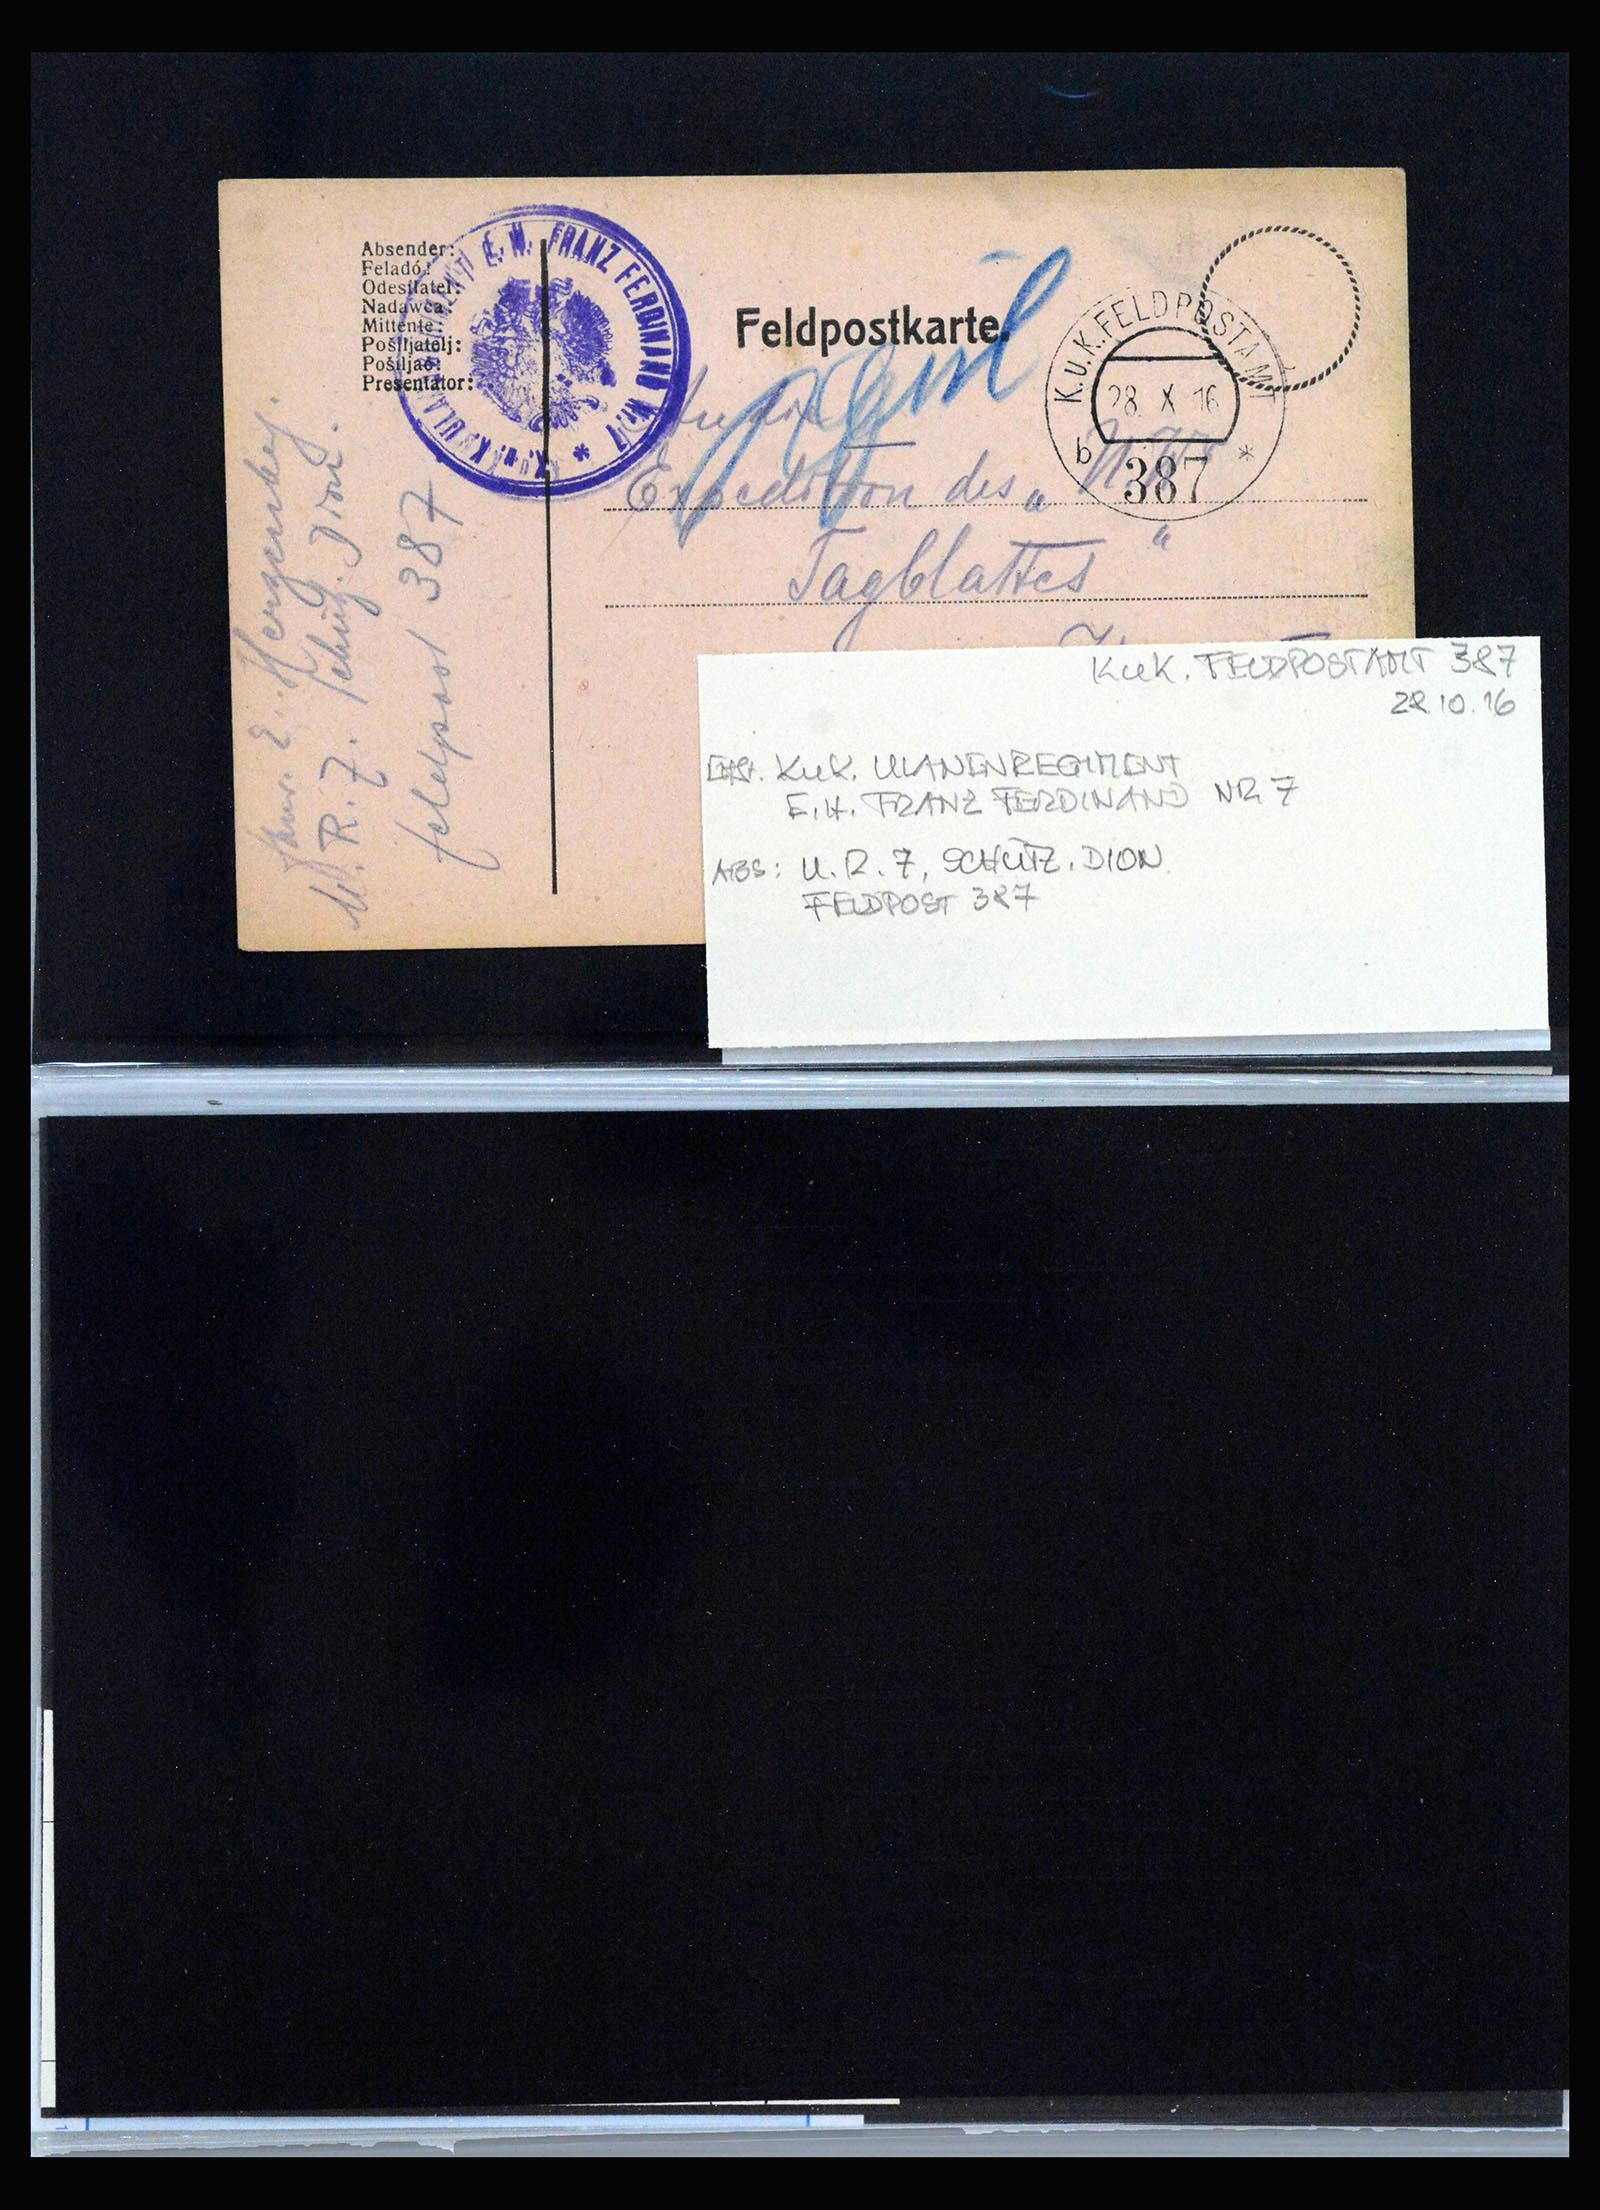 Absender:
Feladó:
Odesílatel:
Nadawca:
Mittente:
Pošiljatelj:
Pošiljač:
Presentator:
K.u.K. ULANENREGIMENT E.H. FRANZ FERDINAND Nr. 7 *
Feldpostkarte.
K.u.K. FELDPOSTAMT
28. X 16
b 387 *
An die
Expedition des „
Tagblattes“
U.R. 7. Schütz. Dion.
Feldpost 387
KuK. FELDPOSTAMT 387
28.10.16
KuK. ULANENREGIMENT
E.H. FRANZ FERDINAND NR 7
ABS: U.R. 7, SCHÜTZ. DION.
FELDPOST 387